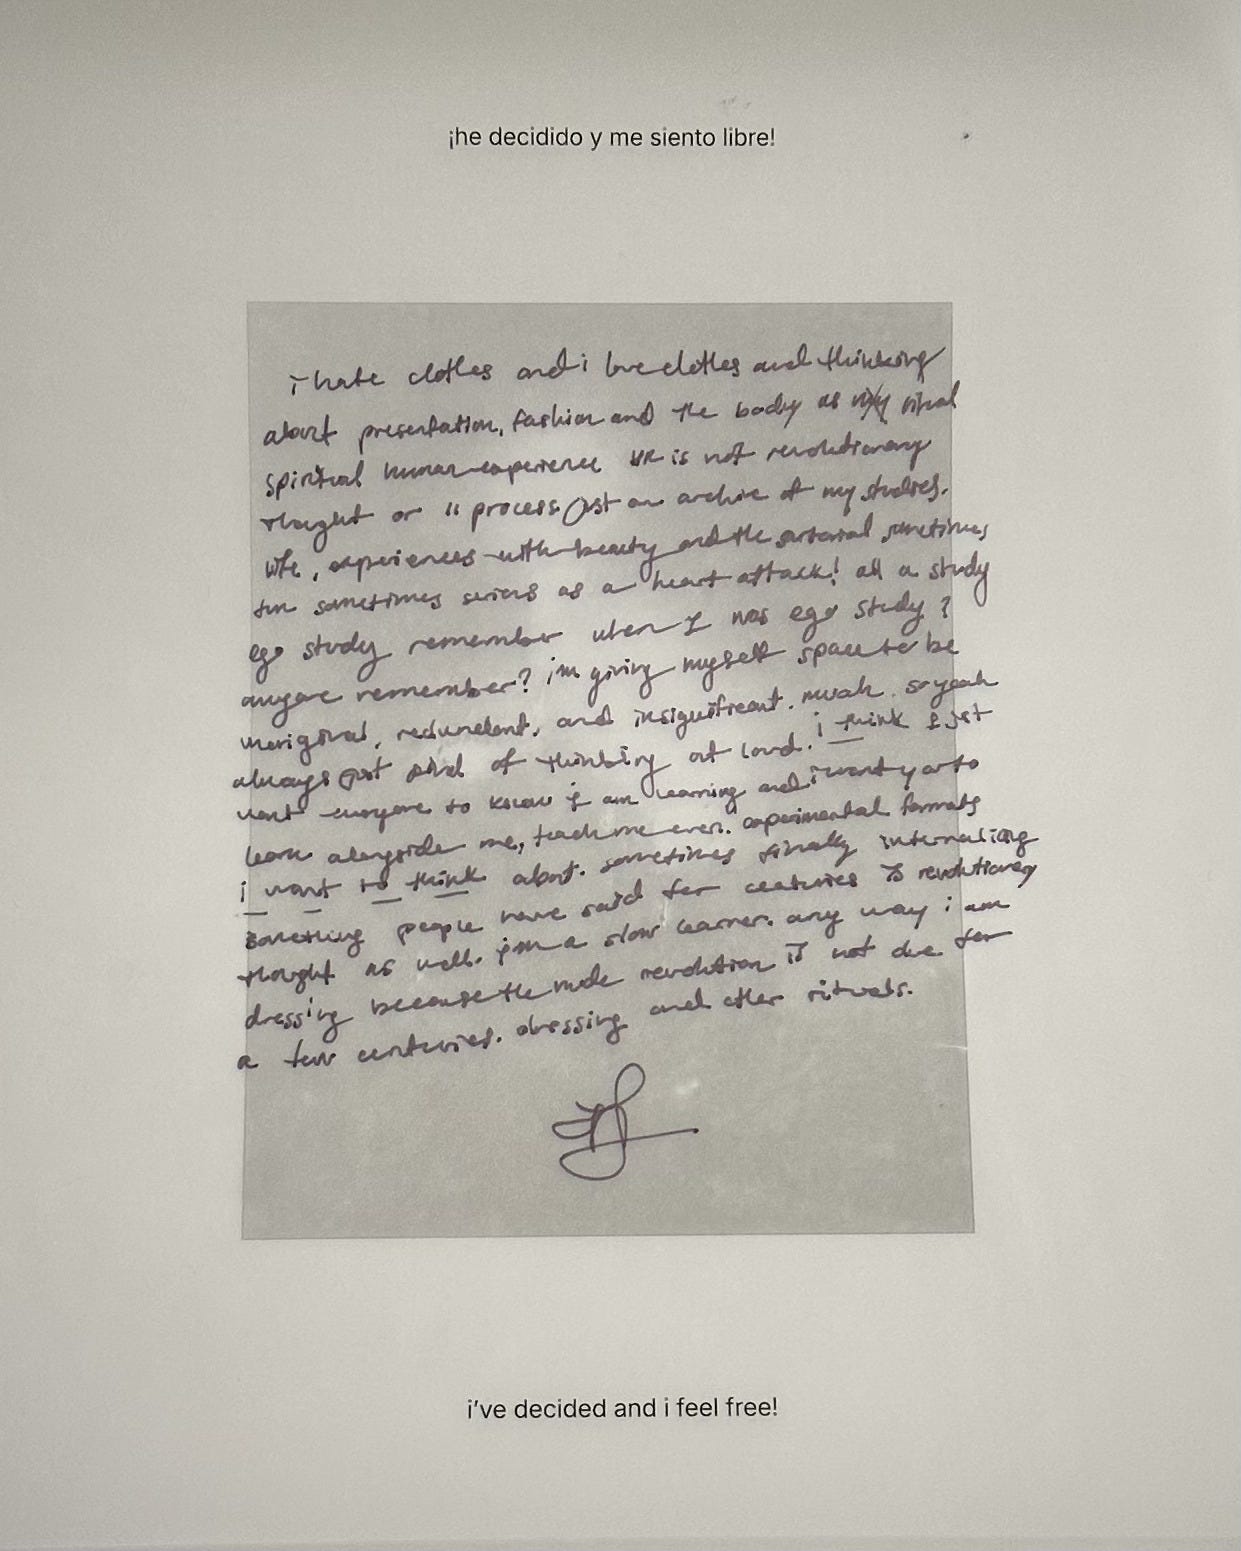 ¡he decidido y me siento libre!
i hate clothes and i love clothes and thinking
about presentation, fashion and the body as vital
spiritual human experience is not revolutionary
thought or process. just an archive of my studies.
life, experiences with beauty and the sartorial sometimes
fun sometimes serious as a heart attack! all a study
ego study remember when I was ego study?
anyone remember? i'm giving myself space to be
unoriginal, redundant, and insignificant. mwah. so yeah
always just kind of thinking out loud. i think I just
want everyone to know i am learning and i want you to
learn alongside me, teach me even. experimental formats
i want to think about. sometimes finally internalizing
something people have said for centuries is revolutionary
thought as well. i'm a slow learner. any way i am
dressing because the nude revolution is not due for
a few centuries. dressing and other rituals.
i've decided and i feel free!